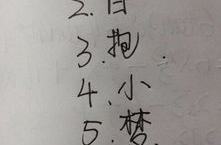 2.
3.抱.
4.小
5.梦